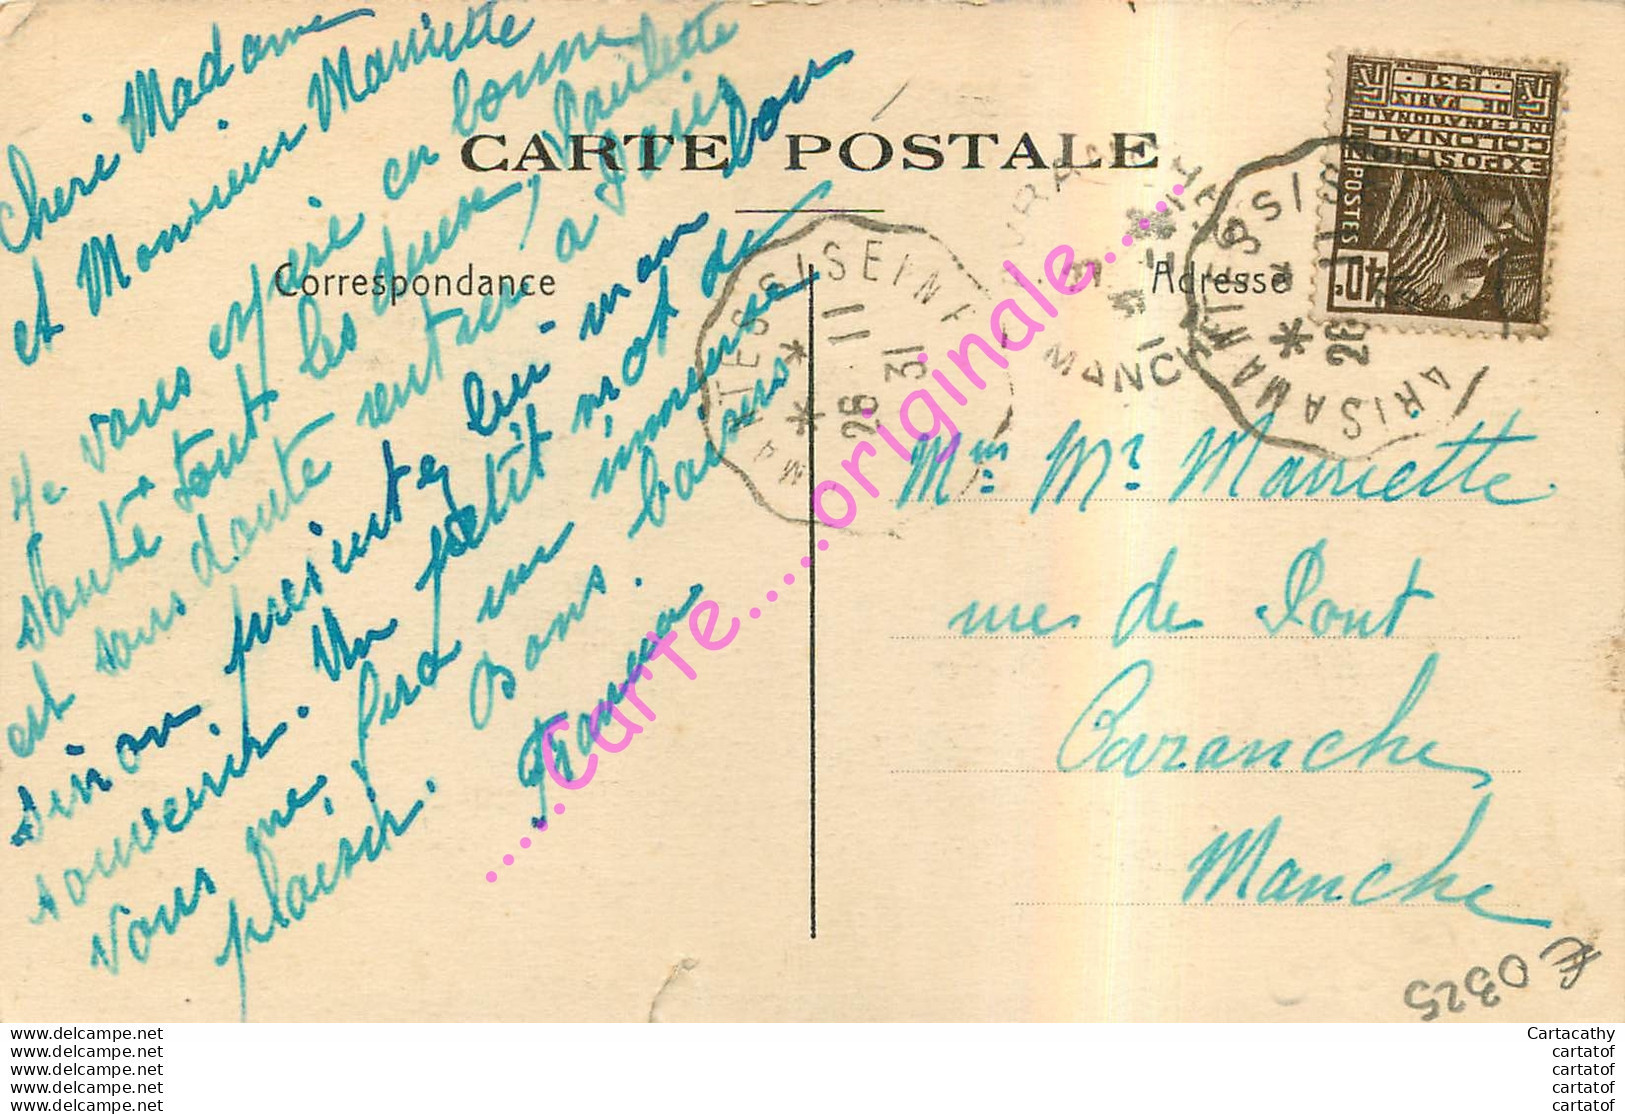 CARTE POSTALE
Correspondance
Adresse
Cheri Madame
et Monsieur Mauriette
Je vous espère en bonne
Santé tout les deux, Paulette
est sans doute rentrer à Paris
sinon, presentez lui mon bon
souvenir. Un petit mot de
vous me fera un immense
plaisir. Bons baisers.
Mme Mr Mauriette
rue de Pont
Avranche
Manche
EXPOSITION
COLONIALE
INTERNATIONALE
DE PARIS
1931
POSTES
40c
MANTES S/SEINE
26 11
31
MANCHE
£ 0325
.....Carte.....originale.....
www.delcampe.net
www.delcampe.net
www.delcampe.net
www.delcampe.net
www.delcampe.net
Cartacathy
cartatof
cartatof
cartatof
cartatof